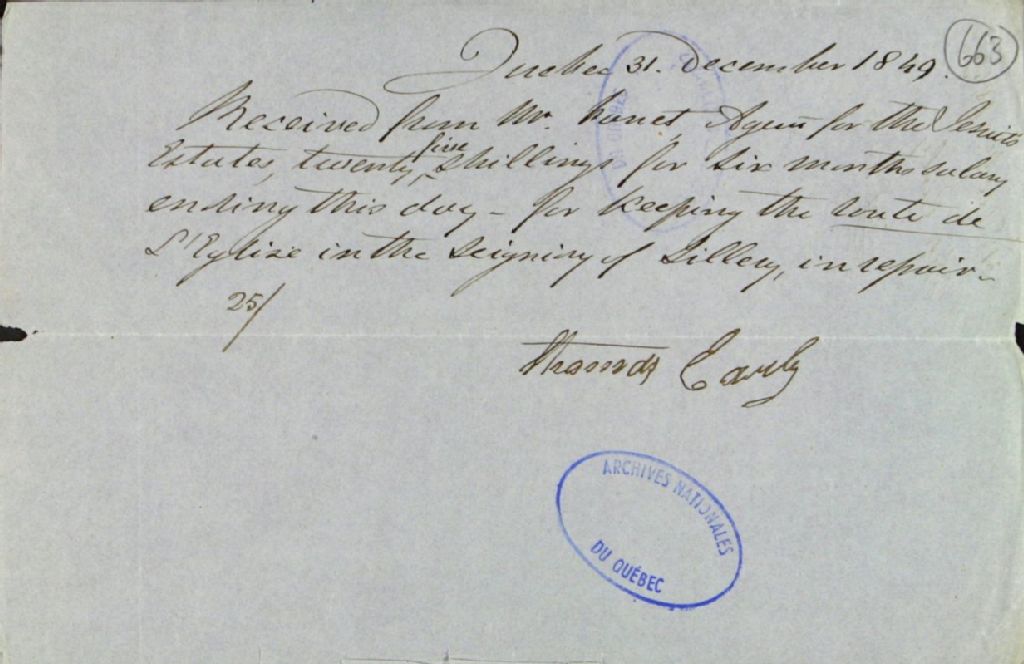 Quebec 31. December 1849.
663
Received from Mr. Panet, Agent for the Jesuits
Estates, twenty five shillings for six months salary
ending this day – for keeping the route de
L'Eglise in the Seigniory of Sillery, in repair –
25/
Thomas Early
ARCHIVES NATIONALES
DU QUÉBEC